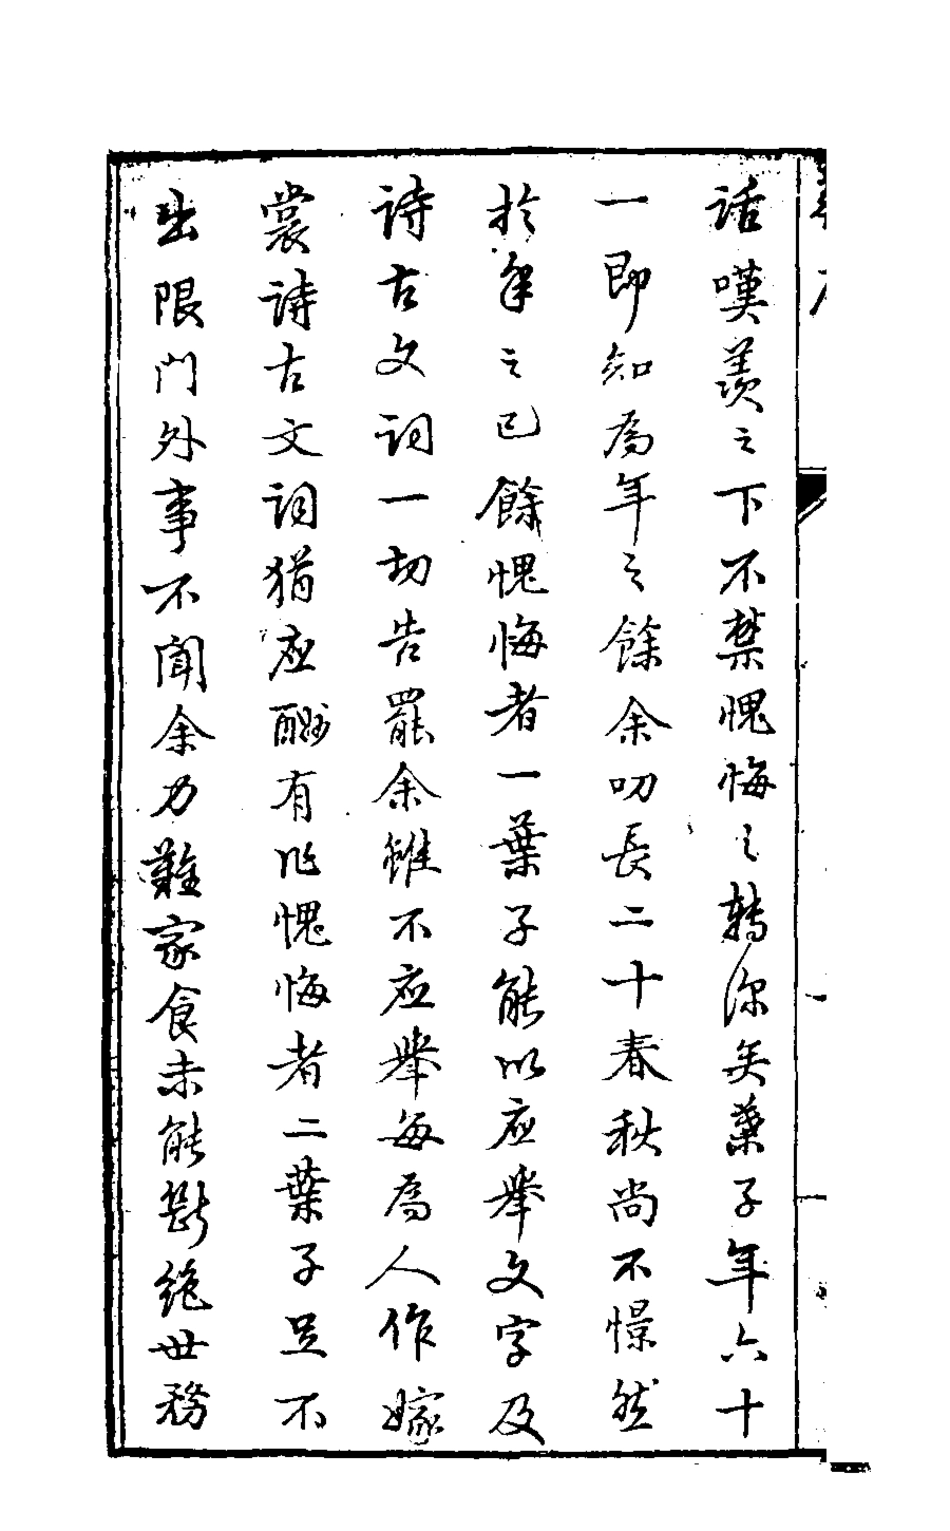 話嘆羨之下不禁愧悔之轉深矣葉子年六十
一即知為年之餘余叨長二十春秋尚不憬然
於年之已餘愧悔者一葉子能以應舉文字及
詩古文詞一切告罷余雖不應舉每為人作嫁
裳詩古文詞猶應酬有作愧悔者二葉子足不
出限門外事不聞余力難家食未能斷絕世務